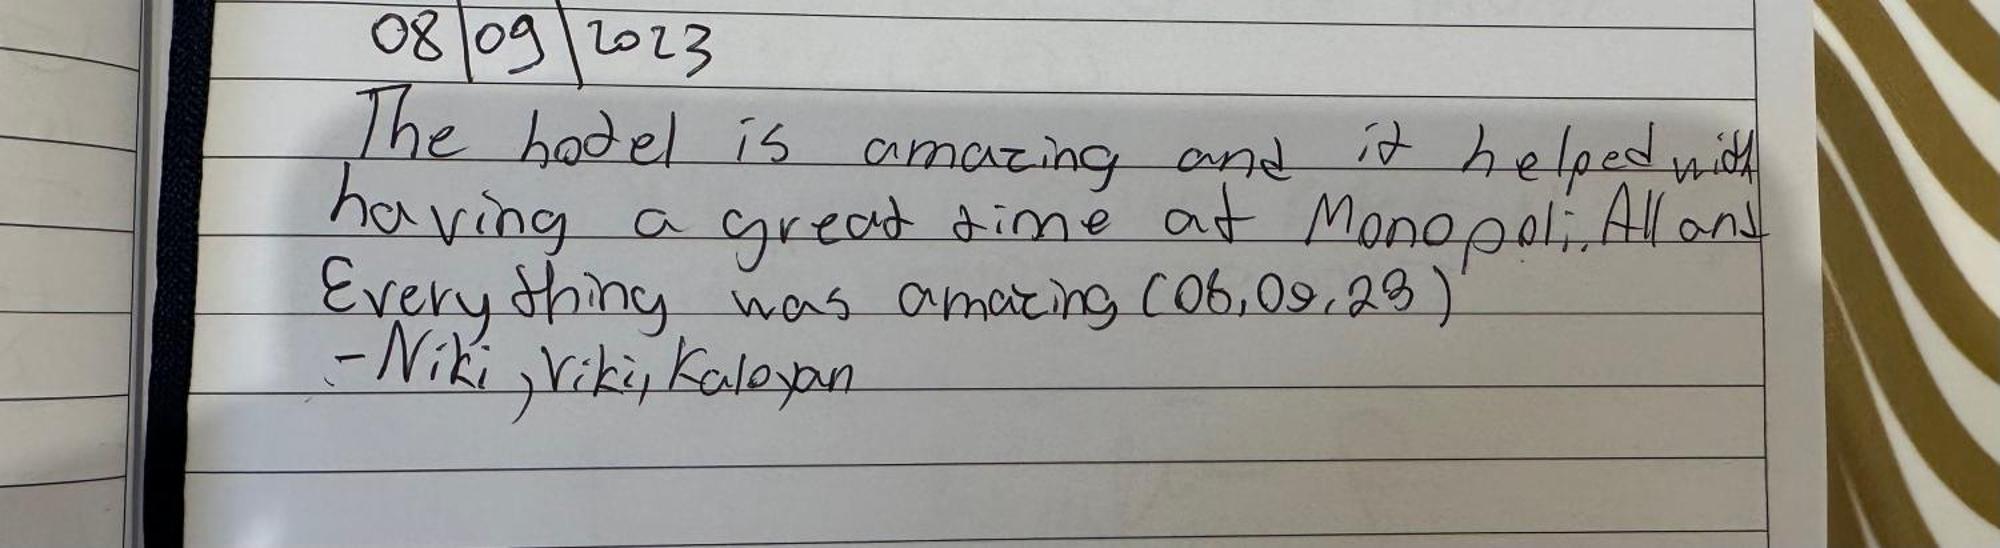 08/09/2023
The hotel is amazing and it helped with
having a great time at Monopoli. All and
Everything was amazing (06,09,23)
- Niki, Viki, Kaloyan